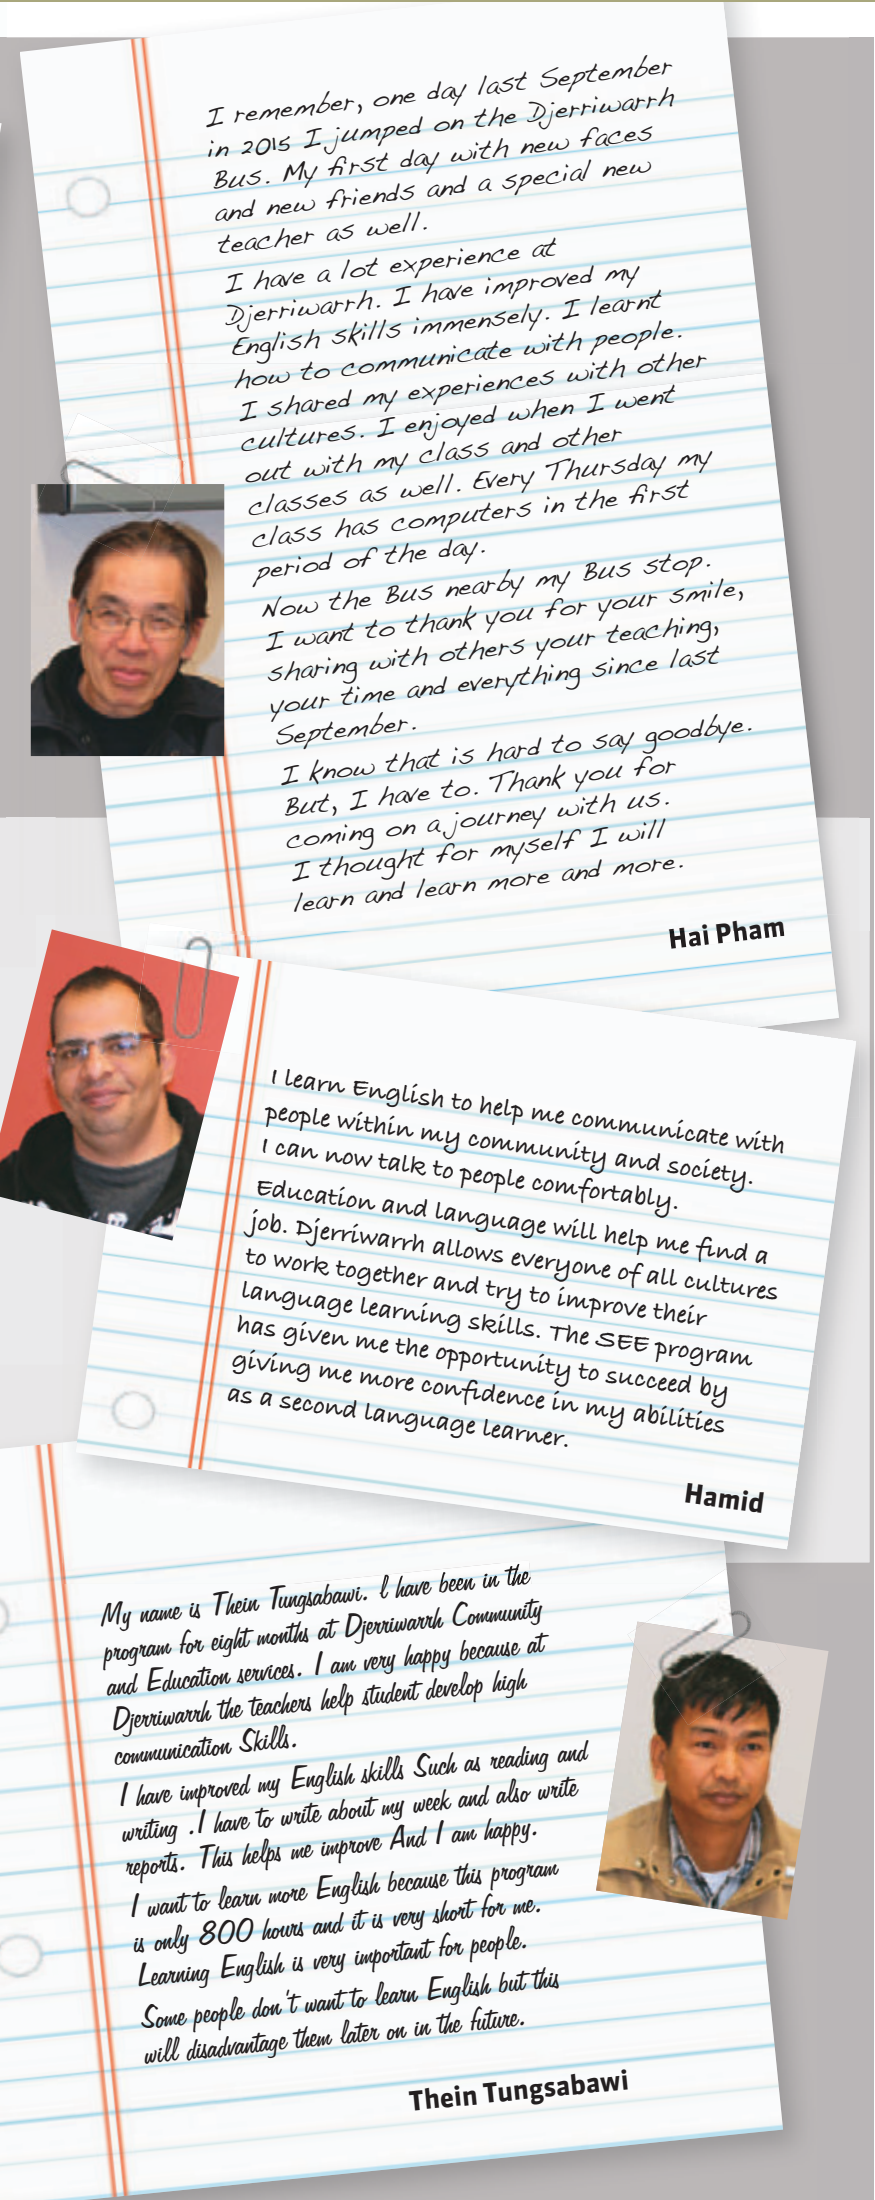 I remember, one day last September
in 2015 I jumped on the Djerriwarrh
Bus. My first day with new faces
and new friends and a special new
teacher as well.
I have a lot experience at
Djerriwarrh. I have improved my
English skills immensely. I learnt
how to communicate with people.
I shared my experiences with other
cultures. I enjoyed when I went
out with my class and other
classes as well. Every Thursday my
class has computers in the first
period of the day.
Now the Bus nearby my Bus stop.
I want to thank you for your smile,
sharing with others your teaching,
your time and everything since last
September.
I know that is hard to say goodbye.
But, I have to. Thank you for
coming on a journey with us.
I thought for myself I will
learn and learn more and more.
Hai Pham
I learn English to help me communicate with
people within my community and society.
I can now talk to people comfortably.
Education and language will help me find a
job. Djerriwarrh allows everyone of all cultures
to work together and try to improve their
language learning skills. The SEE program
has given me the opportunity to succeed by
giving me more confidence in my abilities
as a second language learner.
Hamid
My name is Thein Tungsabawi. I have been in the
program for eight months at Djerriwarrh Community
and Education services. I am very happy because at
Djerriwarrh the teachers help student develop high
communication Skills.
I have improved my English skills Such as reading and
writing .I have to write about my week and also write
reports. This helps me improve And I am happy.
I want to learn more English because this program
is only 800 hours and it is very short for me.
Learning English is very important for people.
Some people don't want to learn English but this
will disadvantage them later on in the future.
Thein Tungsabawi